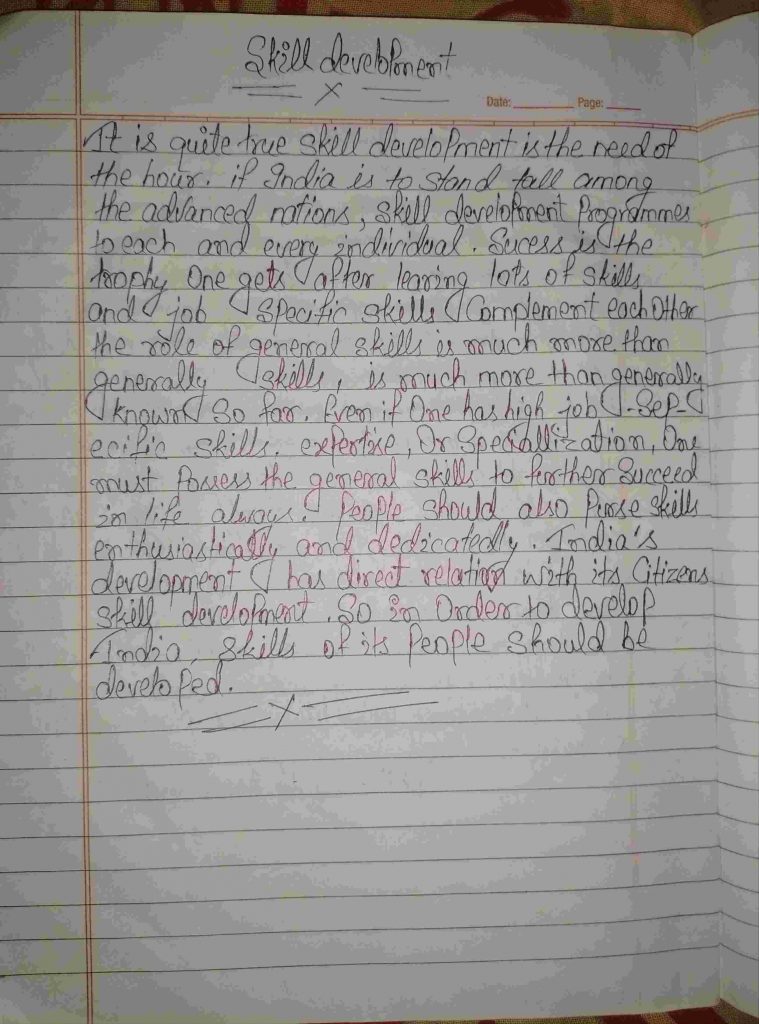 Skill development
Date: Page:
It is quite true skill development is the need of
the hour. if India is to stand tall among
the advanced nations, skill development Programmes
to each and every individual. Sucess is the
trophy One gets after learing lots of skills
and job specific skills Complement each Other
the role of general skills is much more than
generally skills, is much more than generally
known so far. Even if One has high job -Sep-
ecific skills. expertise, Or Speciallization, One
must Possess the general skills to further Succeed
in life always. People should also Purse skills
enthusiastically and dedicatedly. India's
development has direct relation with its Citizens
skill development. So in Order to develop
India, skills of its People should be
developed.